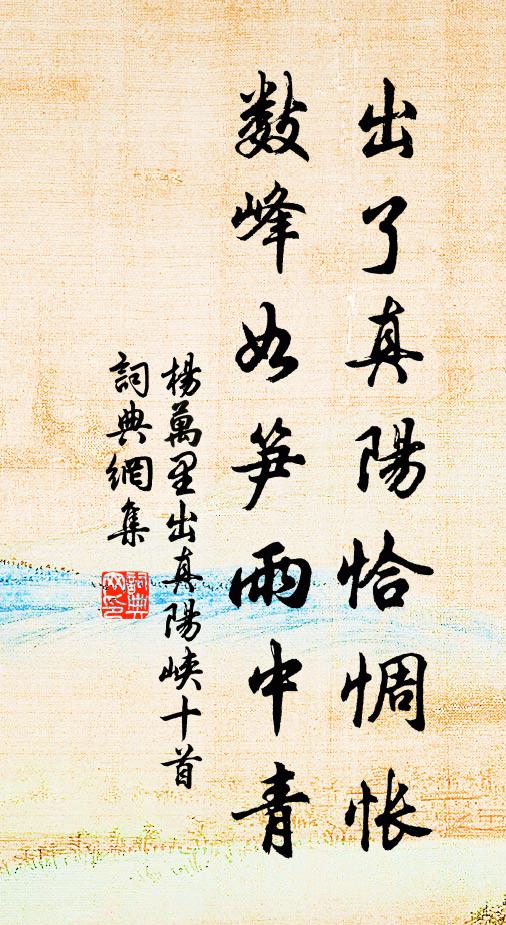 出了真陽恰惆悵
数峰如笋雨中青
楊萬里出真陽峽十首
詞典網集